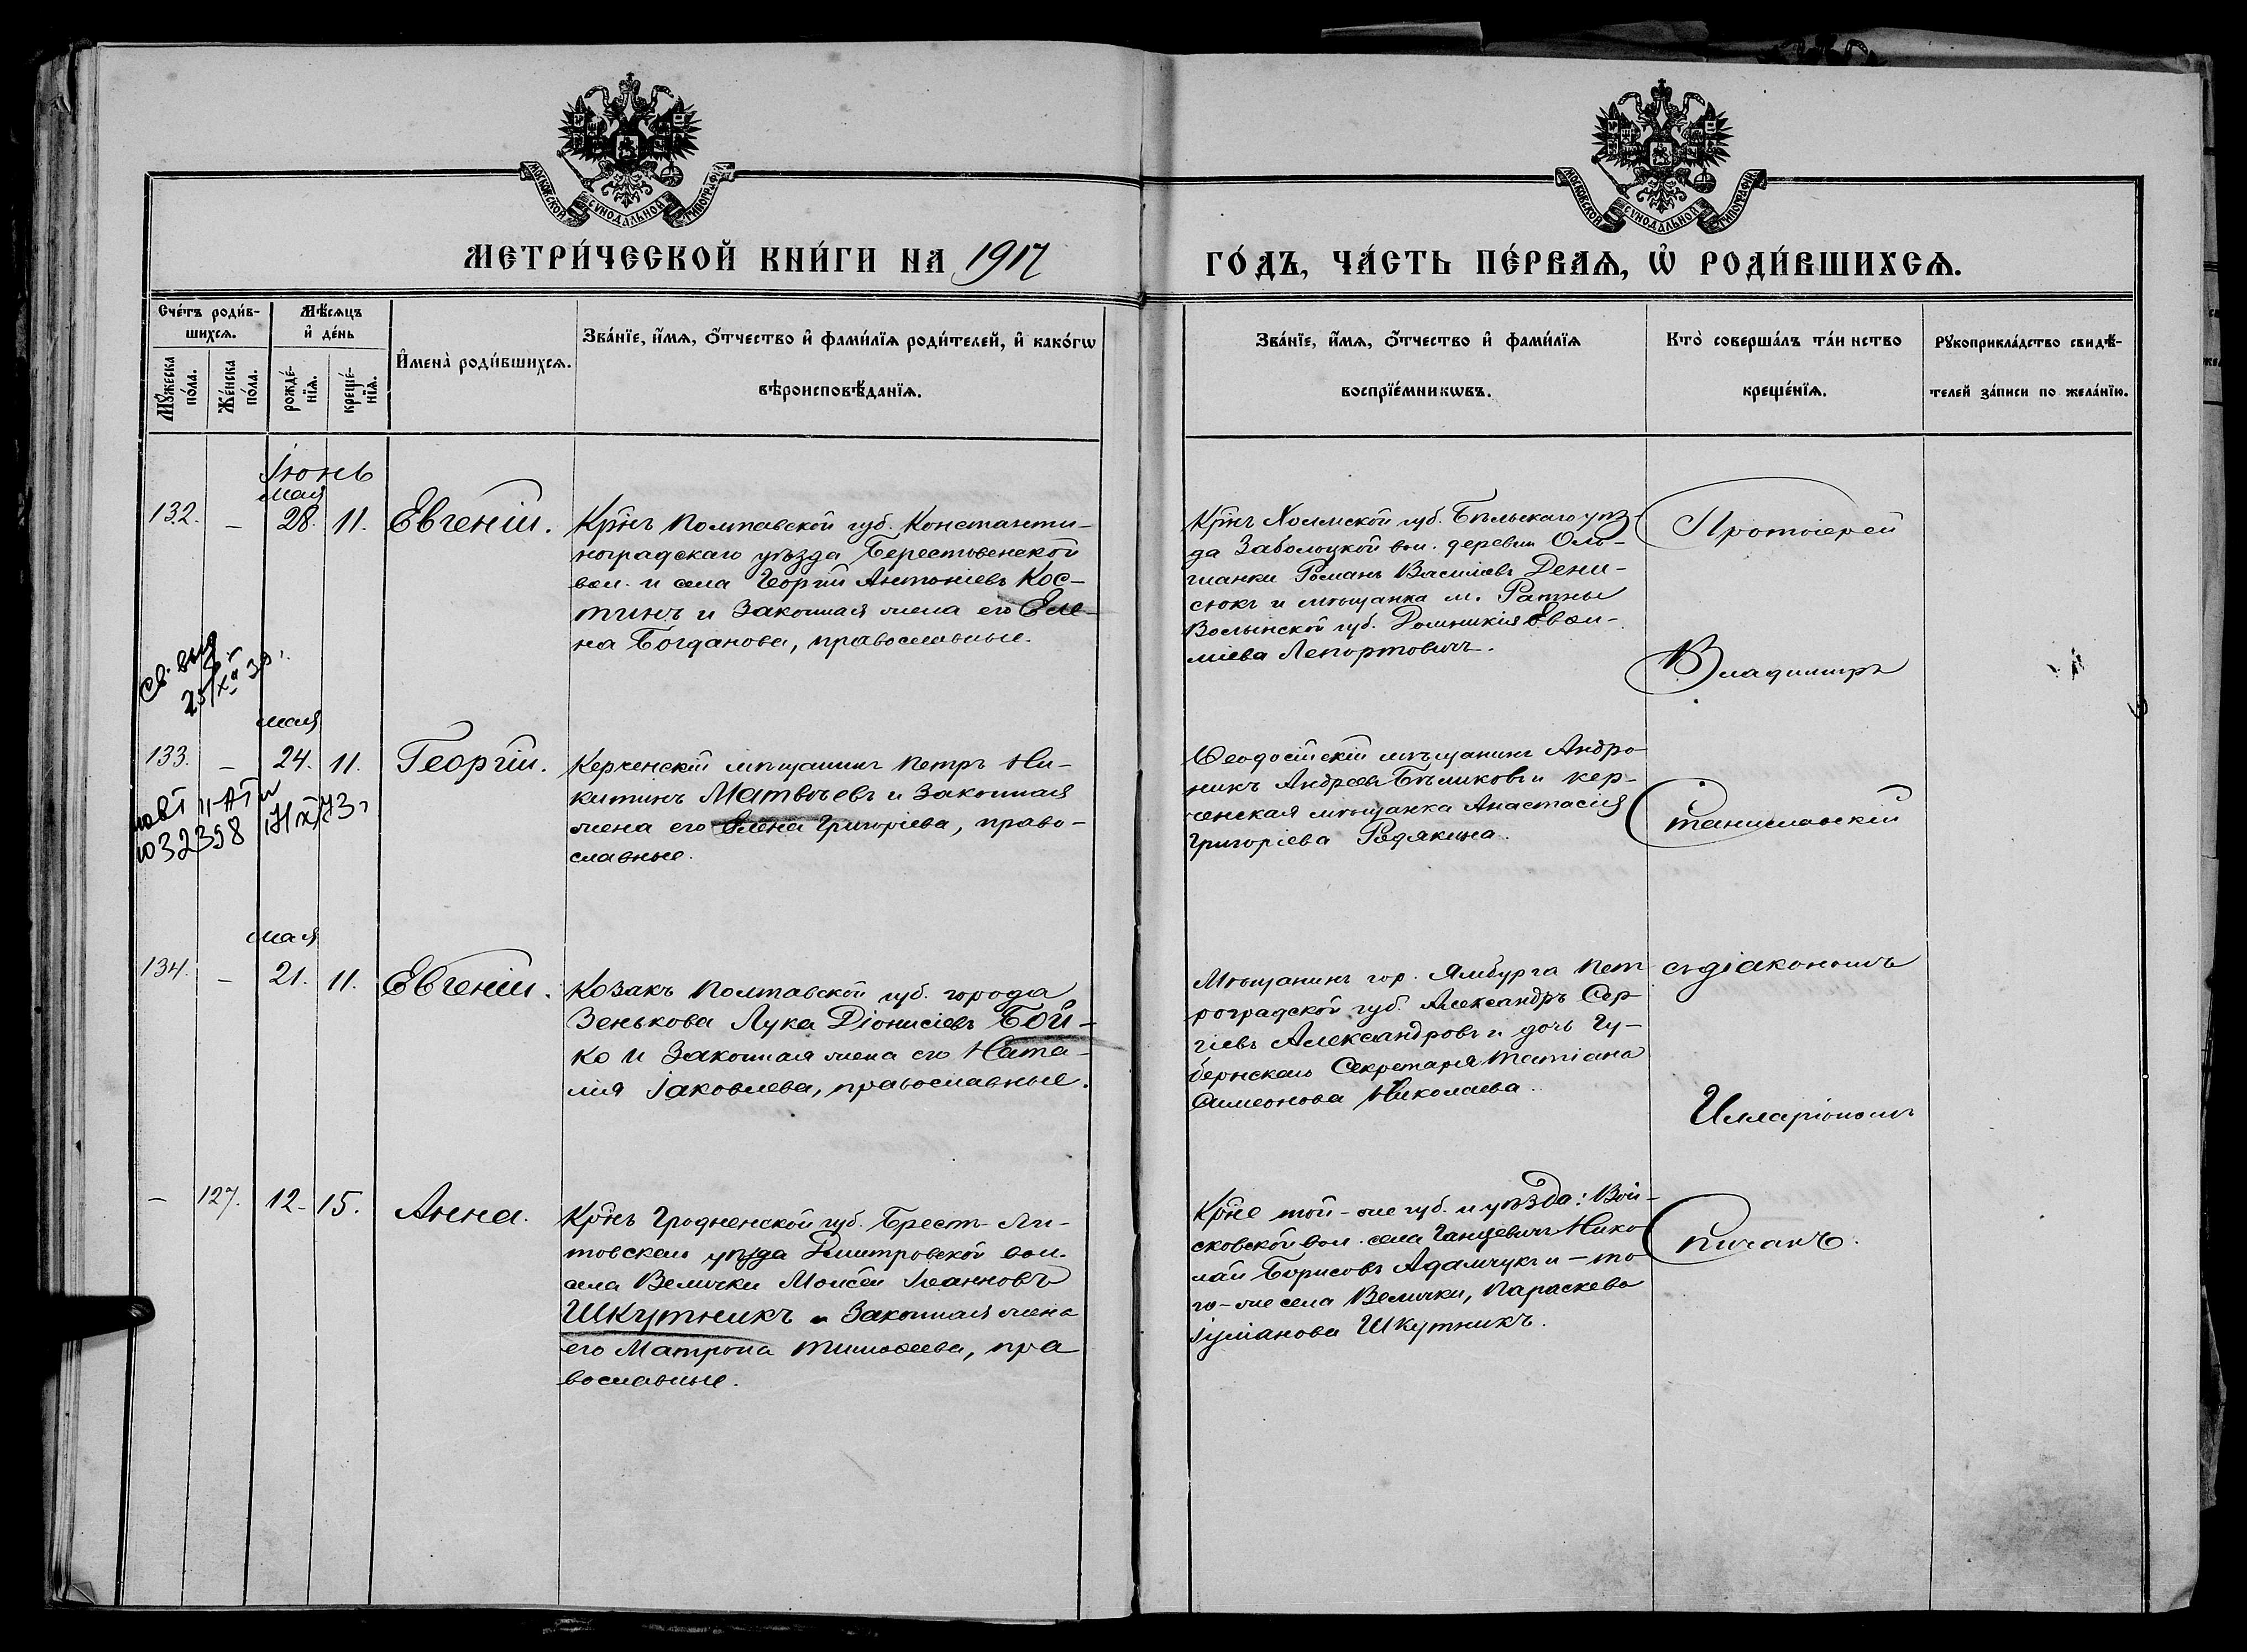 МОСКОВСКОЙ СѴНОДАЛЬНОЙ ТИПОГРАФІИ
МОСКОВСКОЙ СѴНОДАЛЬНОЙ ТИПОГРАФІИ
МЕТРИ́ЧЕСКОЙ КНИ́ГИ НА 1917
ГО́ДЪ, ЧА́СТЬ ПЕ́РВАѦ, Ѡ҆ РОДИ́ВШИХСѦ.
Сче́тъ роди́в-
шихсѧ.
Мѣ́сѧцъ
и҆ де́нь
Мꙋ́жеска
по́ла.
Же́нска
по́ла.
рожде́-
нїѧ.
креще́-
нїѧ.
И҆мена̀ роди́вшихсѧ.
Зва́нїе, и҆́мѧ, ѻ҆́тчество и҆ фами́лїѧ роди́телей, и҆ како́гѡ
вѣроисповѣ́данїѧ.
Зва́нїе, и҆́мѧ, ѻ҆́тчество и҆ фами́лїѧ
воспрїе́мникѡвъ.
Кто̀ соверша́лъ та́инство
креще́нїѧ.
Рꙋкоприкла́дство свидѣ́-
телей за́писи по жела́нїю.
Іюнь
мая
132. – 28. 11. Евгеній.
Крнъ Полтавской губ. Константи-
ноградскаго уѣзда Берестовенской
вол. и села Георгій Антоніевъ Кос-
тинъ и законная жена его Еле-
на Богданова, православные.
Крнъ Холмской губ. Бѣльскаго уѣз-
да Заболоцкой вол. деревни Оль-
шанки Романъ Васильевъ Дени-
сюкъ и мѣщанка м. Ратны
Волынской губ. Домникія Евфи-
міева Лепортовичъ.
Протоіерей
Владимиръ
Св. выд
мая
133. – 24. 11. Георгій.
Керченскій мѣщанинъ Петръ Ни-
китинъ Матвѣевъ и законная
жена его Елена Григоріева, право-
славные.
Ѳеодосійскій мѣщанинъ Андро-
никъ Андреевъ Бѣликовъ и кер-
ченская мѣщанка Анастасія
Григоріева Редякина.
Станиславскій
032398
мая
134. – 21. 11. Евгеній.
Козакъ Полтавской губ. города
Зенькова Лука Діонисіевъ Бой-
ко и законная жена его Ната-
лія Іаковлева, православные.
Мѣщанинъ гор. Ямбурга Пет
роградской губ. Александръ Сер-
гіевъ Александровъ и дочь Гу-
бернскаго Секретаря Татіана
Симеонова Николаева.
съ діакономъ
Илларіономъ
– 127. 12. 15. Анна.
Крнъ Гродненской губ. Брест-Ли-
товскаго уѣзда Дмитровской вол.
села Велички Моисей Іоанновъ
Шкутникъ и законная жена
его Матрона Тимоѳеева, пра
вославные.
Крне той-же губ. и уѣзда: Вой-
сковской вол. села Ганцевичъ Нико
лай Борисовъ Адамчукъ и – то
го-же села Велички, Параскева
Іуліанова Шкутникъ.
Пичакъ.